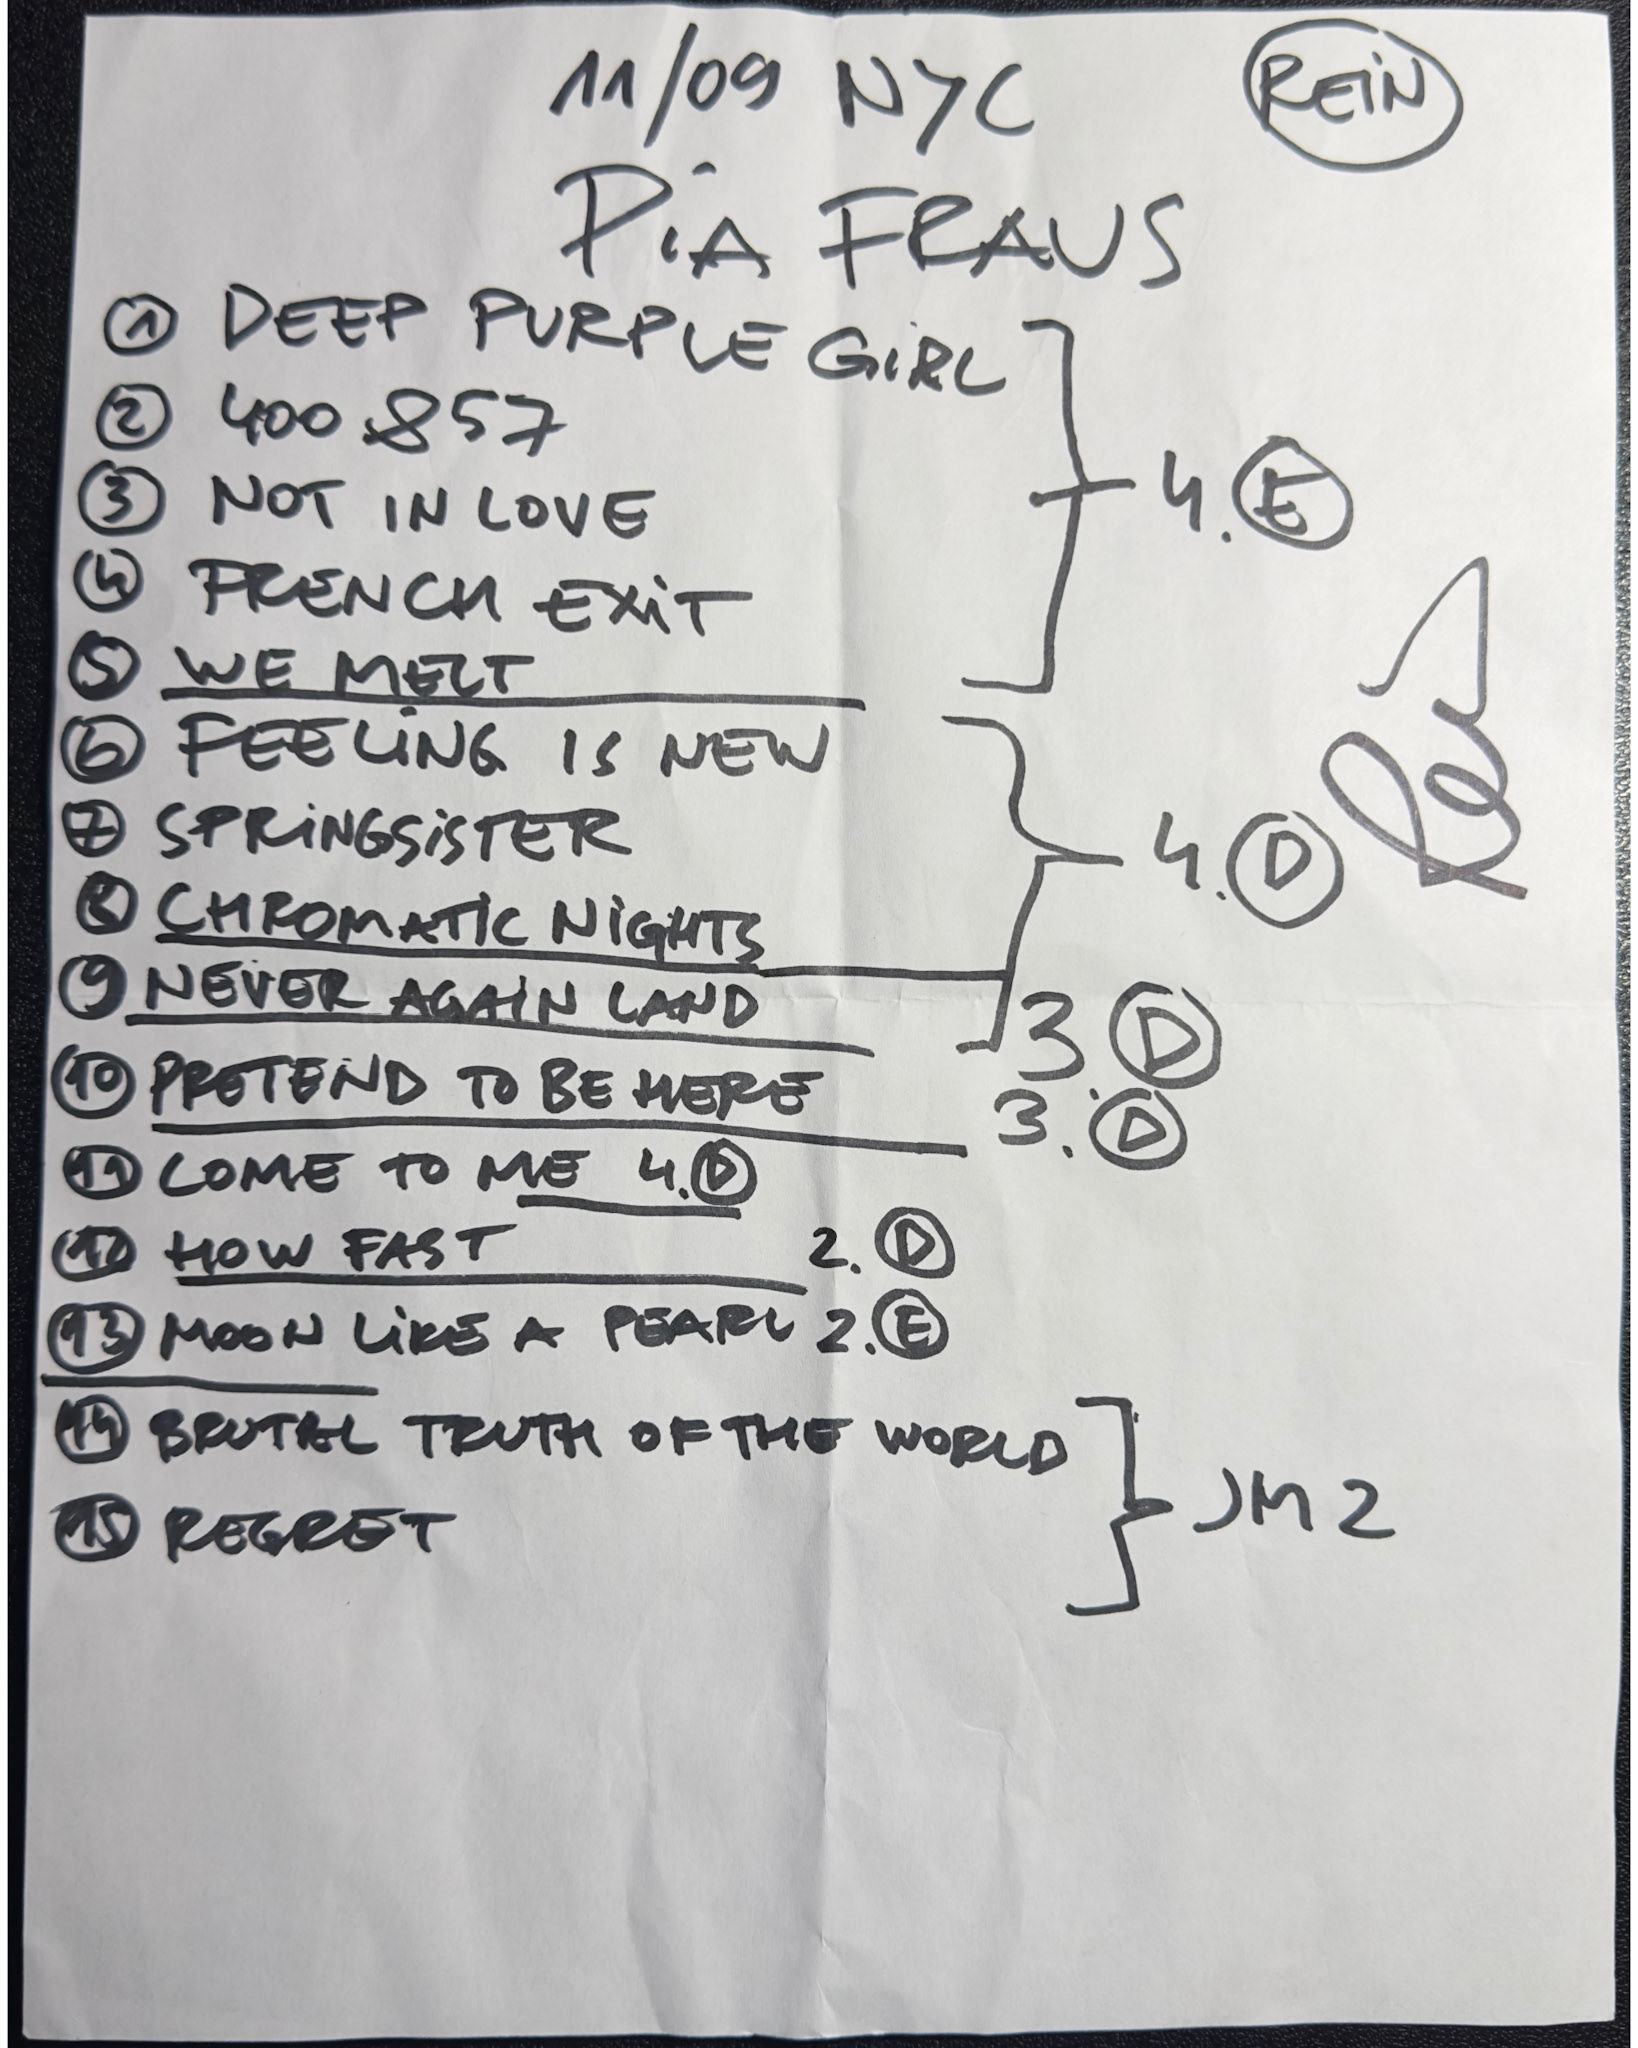 11/09 NYC REIN
PIA FRAUS
1 DEEP PURPLE GIRL
2 400 857
3 NOT IN LOVE
4. E
4 FRENCH EXIT
5 WE MELT
6 FEELING IS NEW
7 SPRINGSISTER
4. D
8 CHROMATIC NIGHTS
9 NEVER AGAIN LAND 3. D
10 PRETEND TO BE HERE 3. D
11 COME TO ME 4. D
12 HOW FAST 2. D
13 MOON LIKE A PEARL 2. E
14 BRUTAL TRUTH OF THE WORLD
JM2
15 REGRET